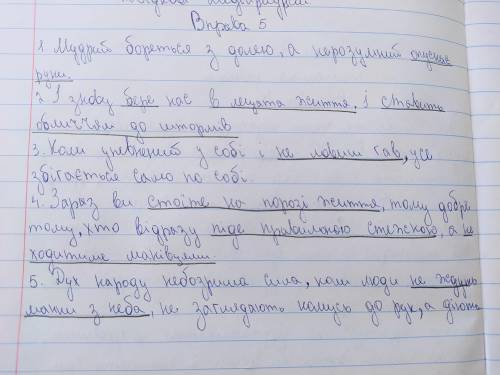 Вправа 5
1. Мудрий бореться з долею, а нерозумний опускає
руки.
2. І знову бере нас в лещата життя, і ставить
обличчям до штормів
3. Коли упевнений у собі і не ловиш гав, усе
збігається само по собі.
4. Зараз ви стоїте на порозі життя, тому добре
тому, хто відразу піде правильною стежкою, а не
ходитиме манівцями.
5. Дух народу необозрима сила, коли люди не ждуть
манни з неба, не заглядають комусь до рук, а діють